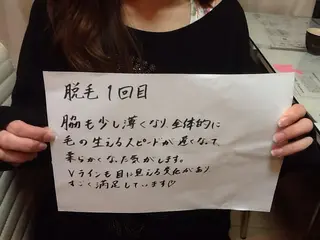 脱毛1回目
脇も少し薄くなり全体的に
毛の生えるスピードが遅くなて
柔らかくなった気がします。
Vラインも目に見える変化があり
すごく満足しています♡